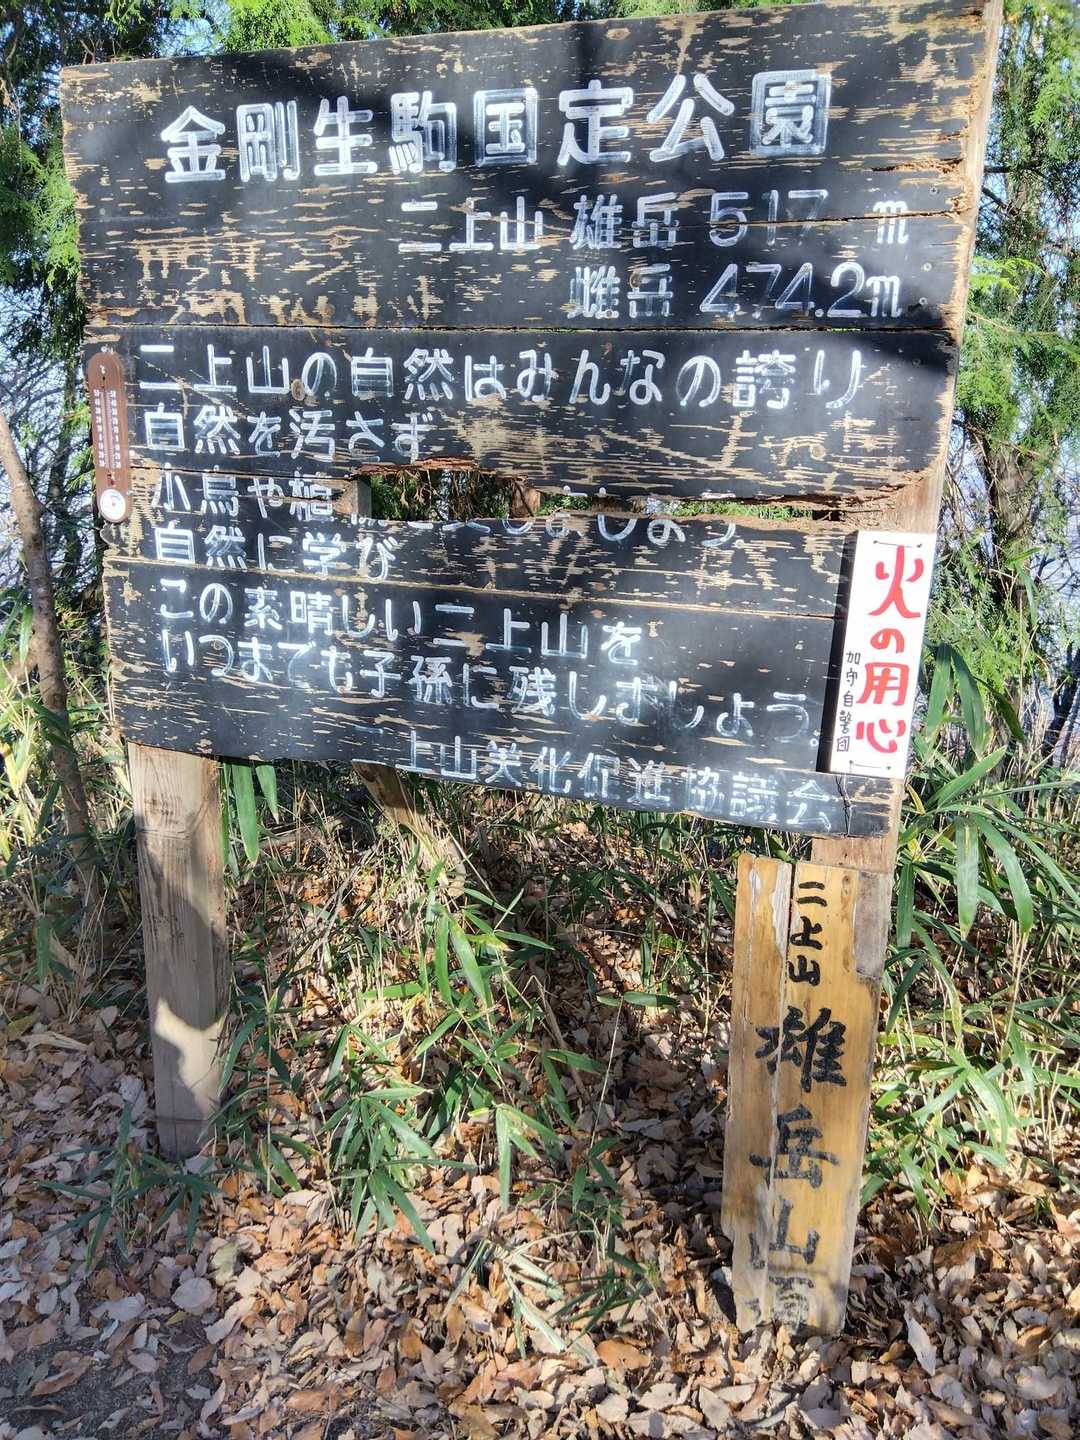 金剛生駒国定公園
二上山 雄岳 517 m
雌岳 474.2m
二上山の自然はみんなの誇り
自然を汚さず
小鳥や植 しましょう
自然に学び
この素晴しい二上山を
いつまでも子孫に残しましょう。
二上山美化促進協議会
火の用心
加守自警団
二上山
雄岳山頂